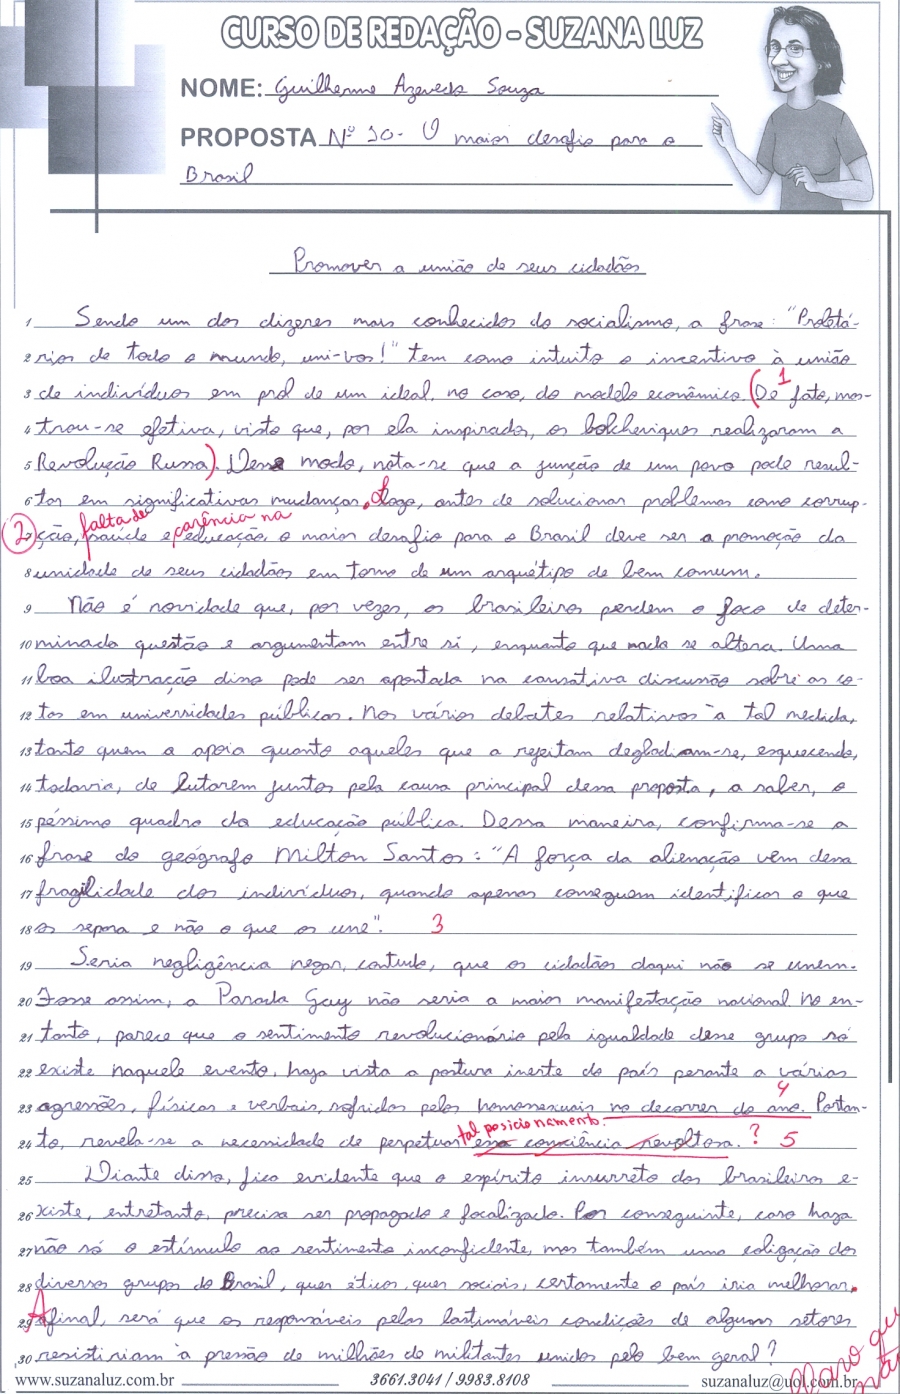 CURSO DE REDAÇÃO - SUZANA LUZ
NOME: Guilherme Azevedo Souza
PROPOSTA Nº 10 - O maior desafio para o
Brasil
Promover a união de seus cidadãos
1 Sendo um dos dizeres mais conhecidos do socialismo, a frase: "Proletá-
2 rios de todo o mundo, uni-vos!" tem como intuito o incentivo à união
3 de indivíduos em prol de um ideal, no caso, do modelo econômico. (De 1 fato, mos-
4 trou-se efetiva, visto que, por ela inspirados, os bolcheviques realizaram a
5 Revolução Russa). Desse modo, nota-se que a junção de um povo pode resul-
6 tar em significativas mudanças. Logo, antes de solucionar problemas como corrup-
falta de carência na
2 7 ção, saúde e educação, o maior desafio para o Brasil deve ser a promoção da
8 unidade de seus cidadãos em torno de um arquétipo de bem comum.
9 Não é novidade que, por vezes, os brasileiros perdem o foco de deter-
10 minada questão e argumentam entre si, enquanto que nada se altera. Uma
11 boa ilustração disso pode ser apontada na cansativa discussão sobre as co-
12 tas em universidades públicas. Nos vários debates relativos a tal medida,
13 tanto quem a apoia quanto aqueles que a rejeitam degladiam-se, esquecendo,
14 todavia, de lutarem juntos pela causa principal dessa proposta, a saber, o
15 péssimo quadro da educação pública. Dessa maneira, confirma-se a
16 frase do geógrafo Milton Santos: "A força da alienação vem dessa
17 fragilidade dos indivíduos, quando apenas conseguem identificar o que
18 os separa e não o que os une". 3
19 Seria negligência negar, contudo, que os cidadãos daqui não se unem.
20 Fosse assim, a Parada Gay não seria a maior manifestação nacional. No en-
21 tanto, parece que o sentimento revolucionário pela igualdade desse grupo só
22 existe naquele evento, haja vista a postura inerte do país perante a várias
4
23 agressões, físicas e verbais, sofridas pelos homossexuais no decorrer do ano. Portan-
tal posicionamento.
24 to, revela-se a necessidade de perpetuar essa consciência revoltosa. ? 5
25 Diante disso, fica evidente que o espírito insurreto dos brasileiros e-
26 xiste, entretanto, precisa ser propagado e focalizado. Por conseguinte, caso haja
27 não só o estímulo ao sentimento inconfidente, mas também uma coligação dos
28 diversos grupos do Brasil, quer éticos, quer sociais, certamente o país iria melhorar.
29 Afinal, será que os responsáveis pelas lastimáveis condições de alguns setores
30 resistiriam à pressão de milhões de militantes unidos pelo bem geral?
www.suzanaluz.com.br 3661.3041 / 9983.8108 suzanaluz@uol.com.br